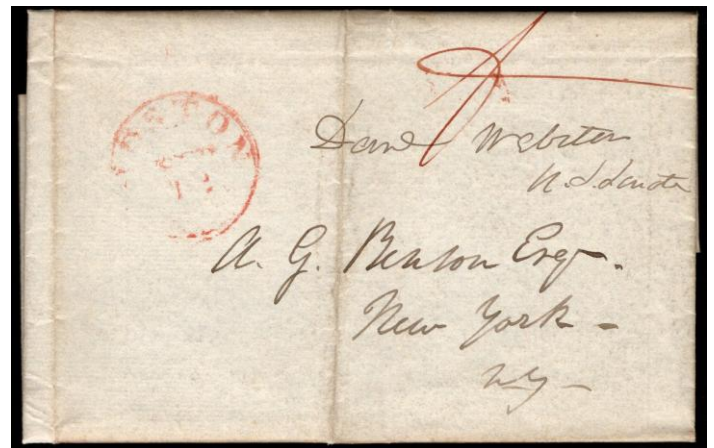 BOSTON
12
Danl Webster
U.S. Senate
A. G. Benson Esqr.
New York -
NY -